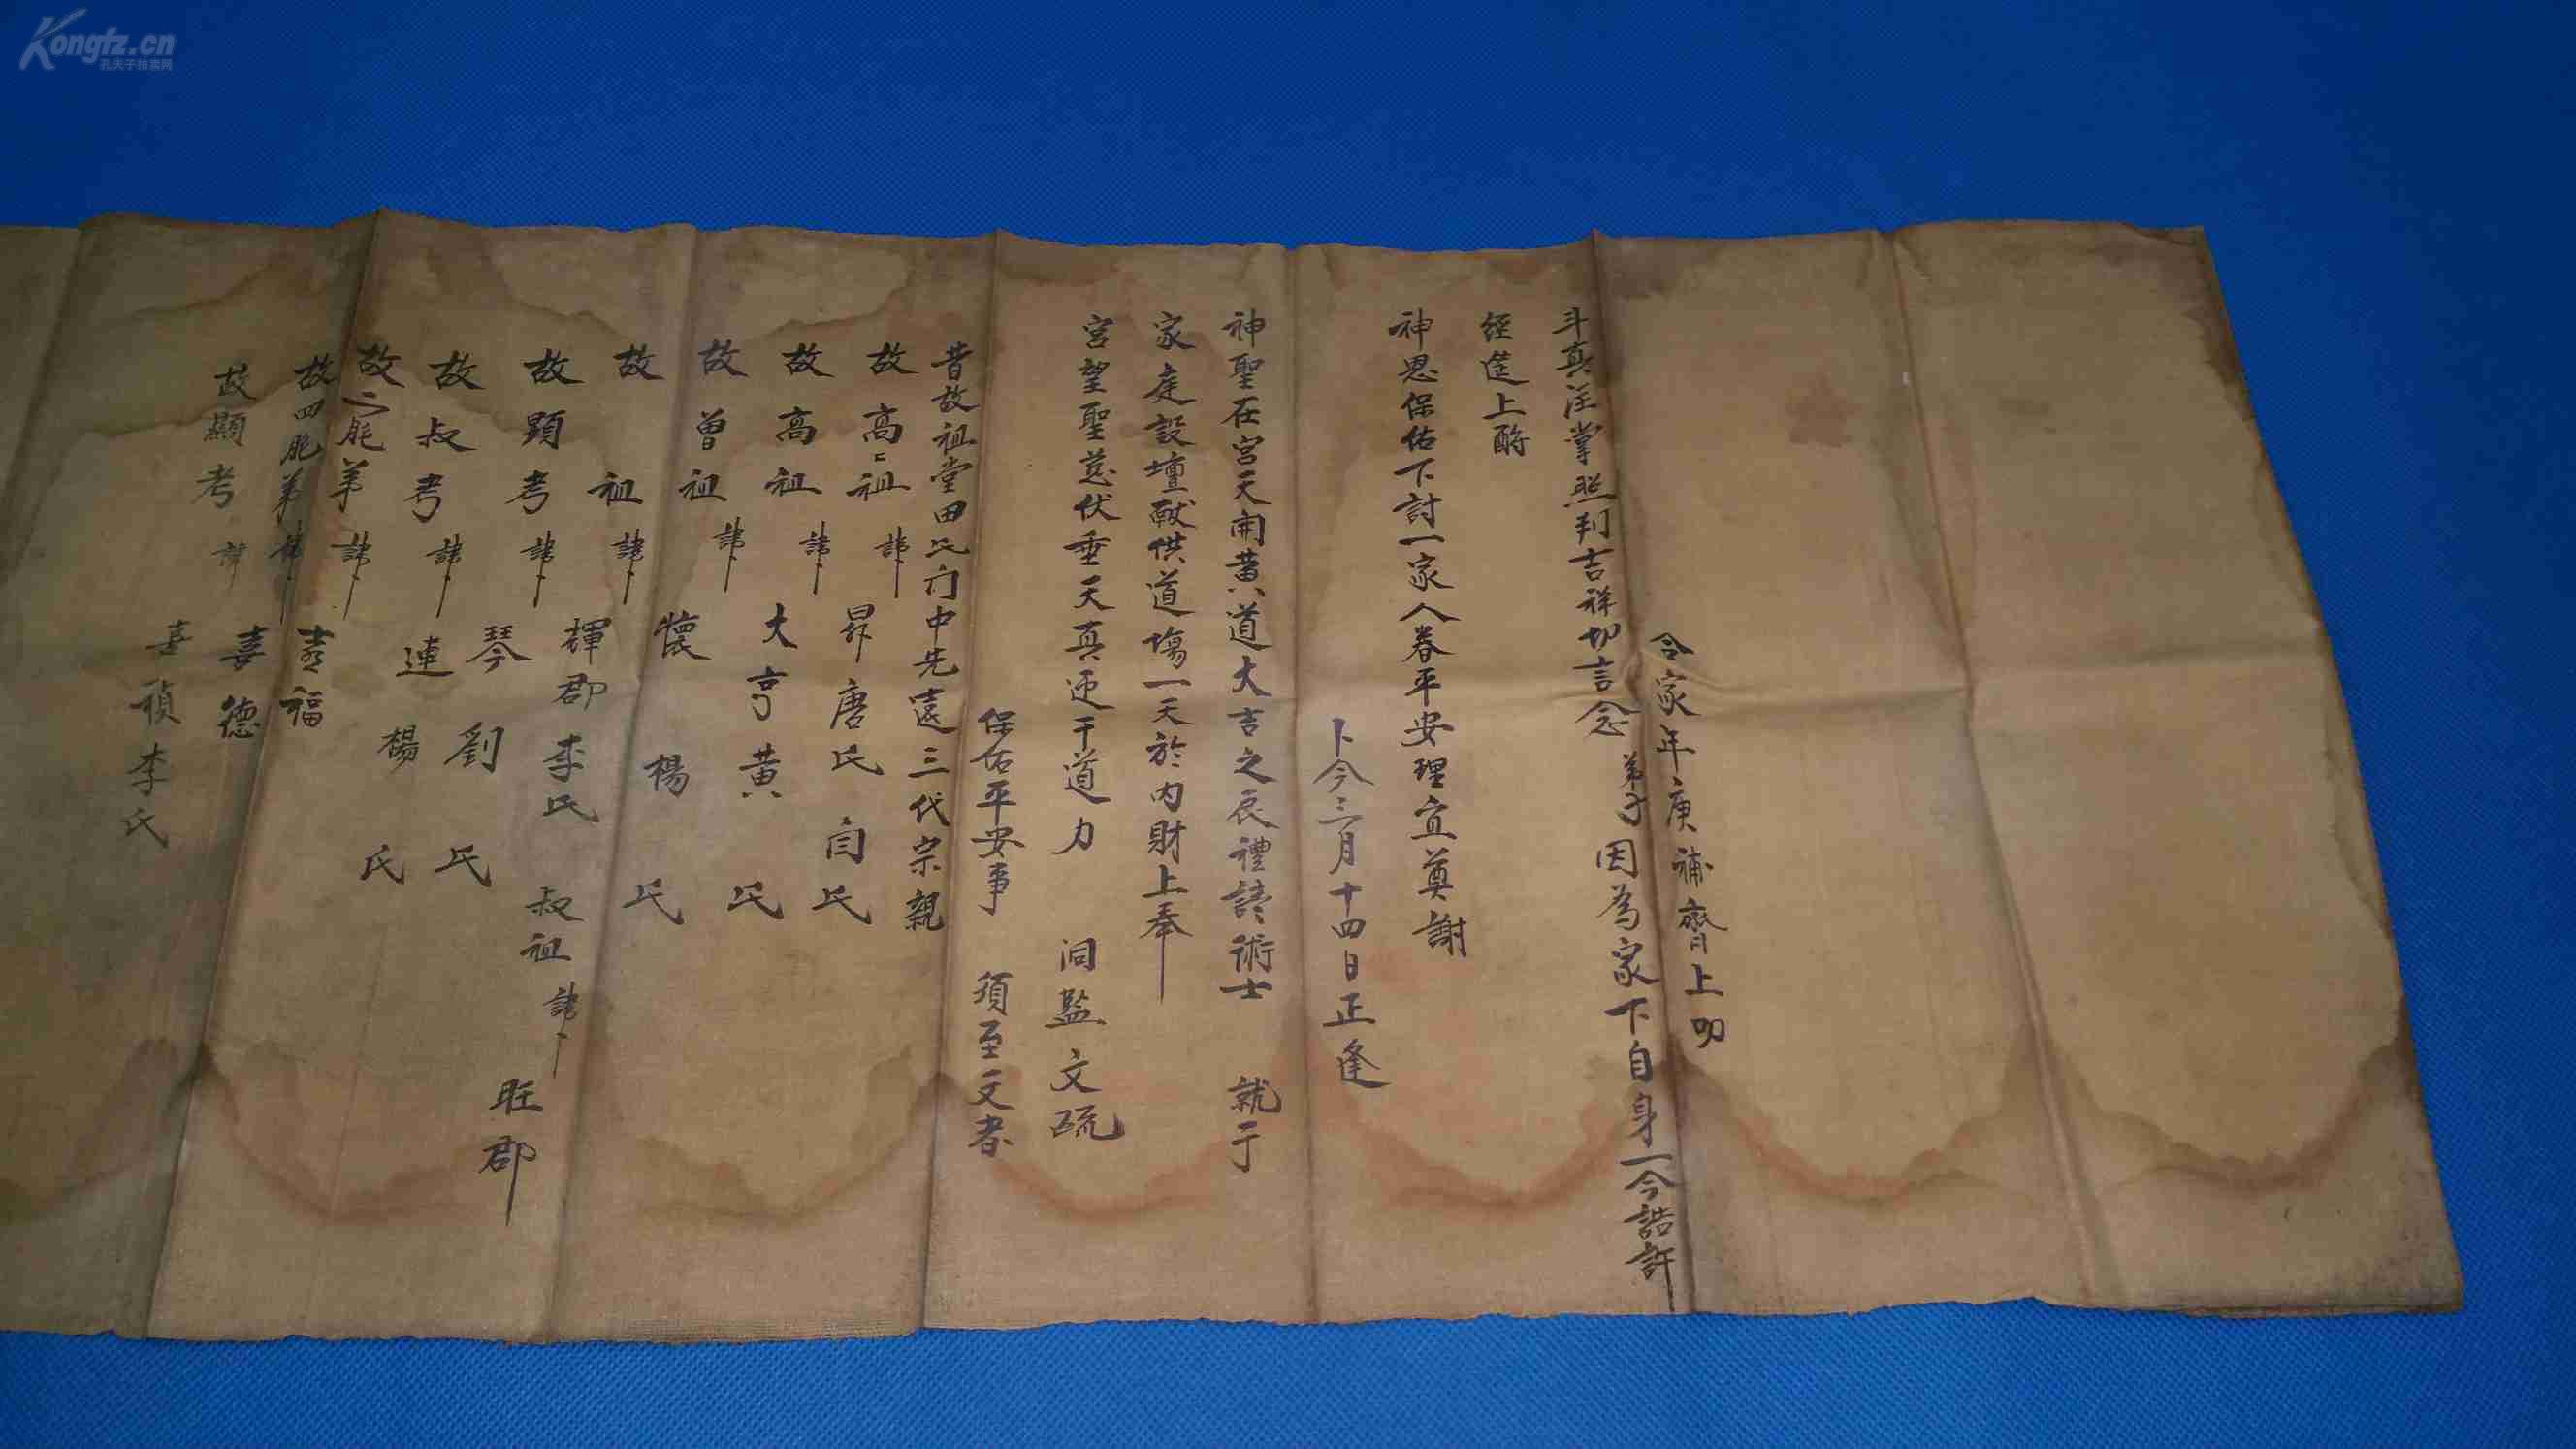 Kongfz.cn
孔夫子拍卖网
家年庚補齊上叩
斗真注掌照判吉祥切言念弟子因為家下自身一今許
經筵上酧
神恩保佑下討一家人眷平安理宜奠謝
卜今三月十四日正逢
神聖在宮天開黃道大吉之辰禮請術士 就于
家庭設壇献供道塲一天於內財上奉
宮望聖慈伏垂天真 干道力 洞監文疏
保佑平安事 須至文者
昔故祖堂田氏门中先遠三代宗親
故高祖諱 昇唐氏 闫氏
故高祖諱 大亨黃氏
故曾祖諱 懷楊氏
故祖諱 輝郡李氏 叔祖諱 旺郡
故顕考諱 琴劉氏
故叔考諱 連楊氏
故二胞弟諱 喜福
故四胞弟諱 喜德
故顯考諱 喜禎李氏